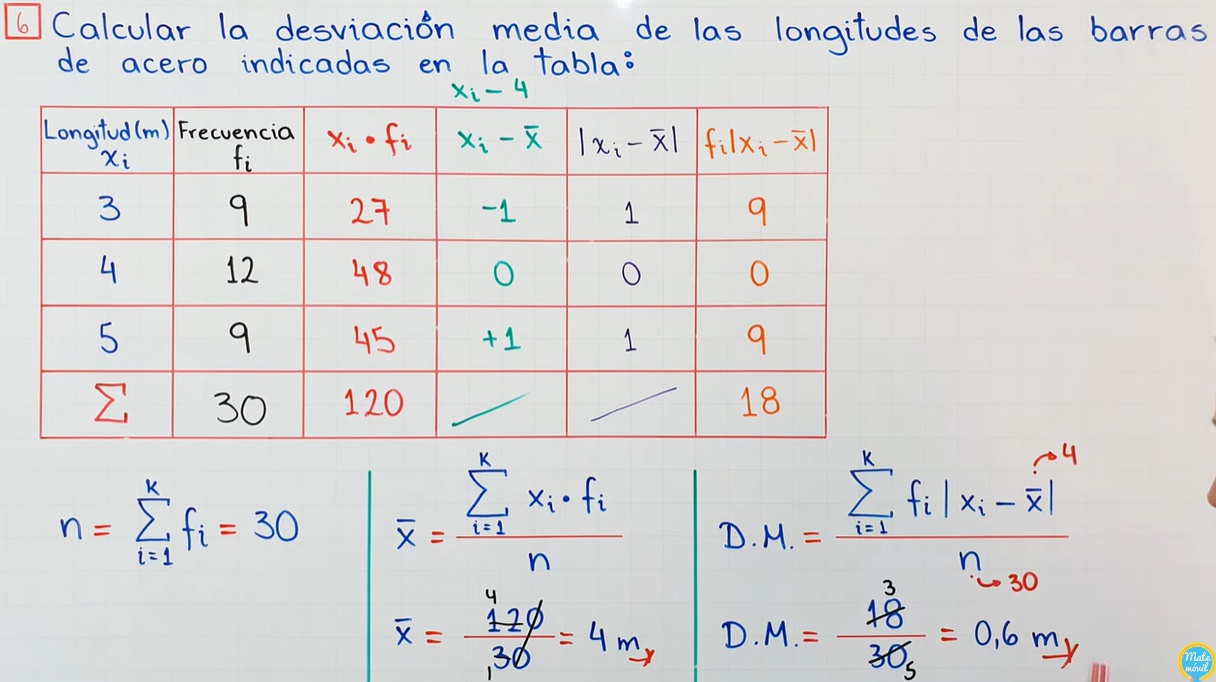 6 Calcular la desviación media de las longitudes de las barras
de acero indicadas en la tabla:
xᵢ − 4
Longitud(m) xᵢ | Frecuencia fᵢ | xᵢ • fᵢ | xᵢ − x̄ | |xᵢ − x̄| | fᵢ|xᵢ − x̄|
3 | 9 | 27 | −1 | 1 | 9
4 | 12 | 48 | 0 | 0 | 0
5 | 9 | 45 | +1 | 1 | 9
Σ | 30 | 120 | / | / | 18
n = Σ_{i=1}^{K} fᵢ = 30
x̄ = Σ_{i=1}^{K} xᵢ • fᵢ / n
x̄ = 120 / 30 = 4 m
4
1
D.M. = Σ_{i=1}^{K} fᵢ |xᵢ − x̄| / n
4
30
D.M. = 18 / 30 = 0,6 m
3
5
Mate
móvil